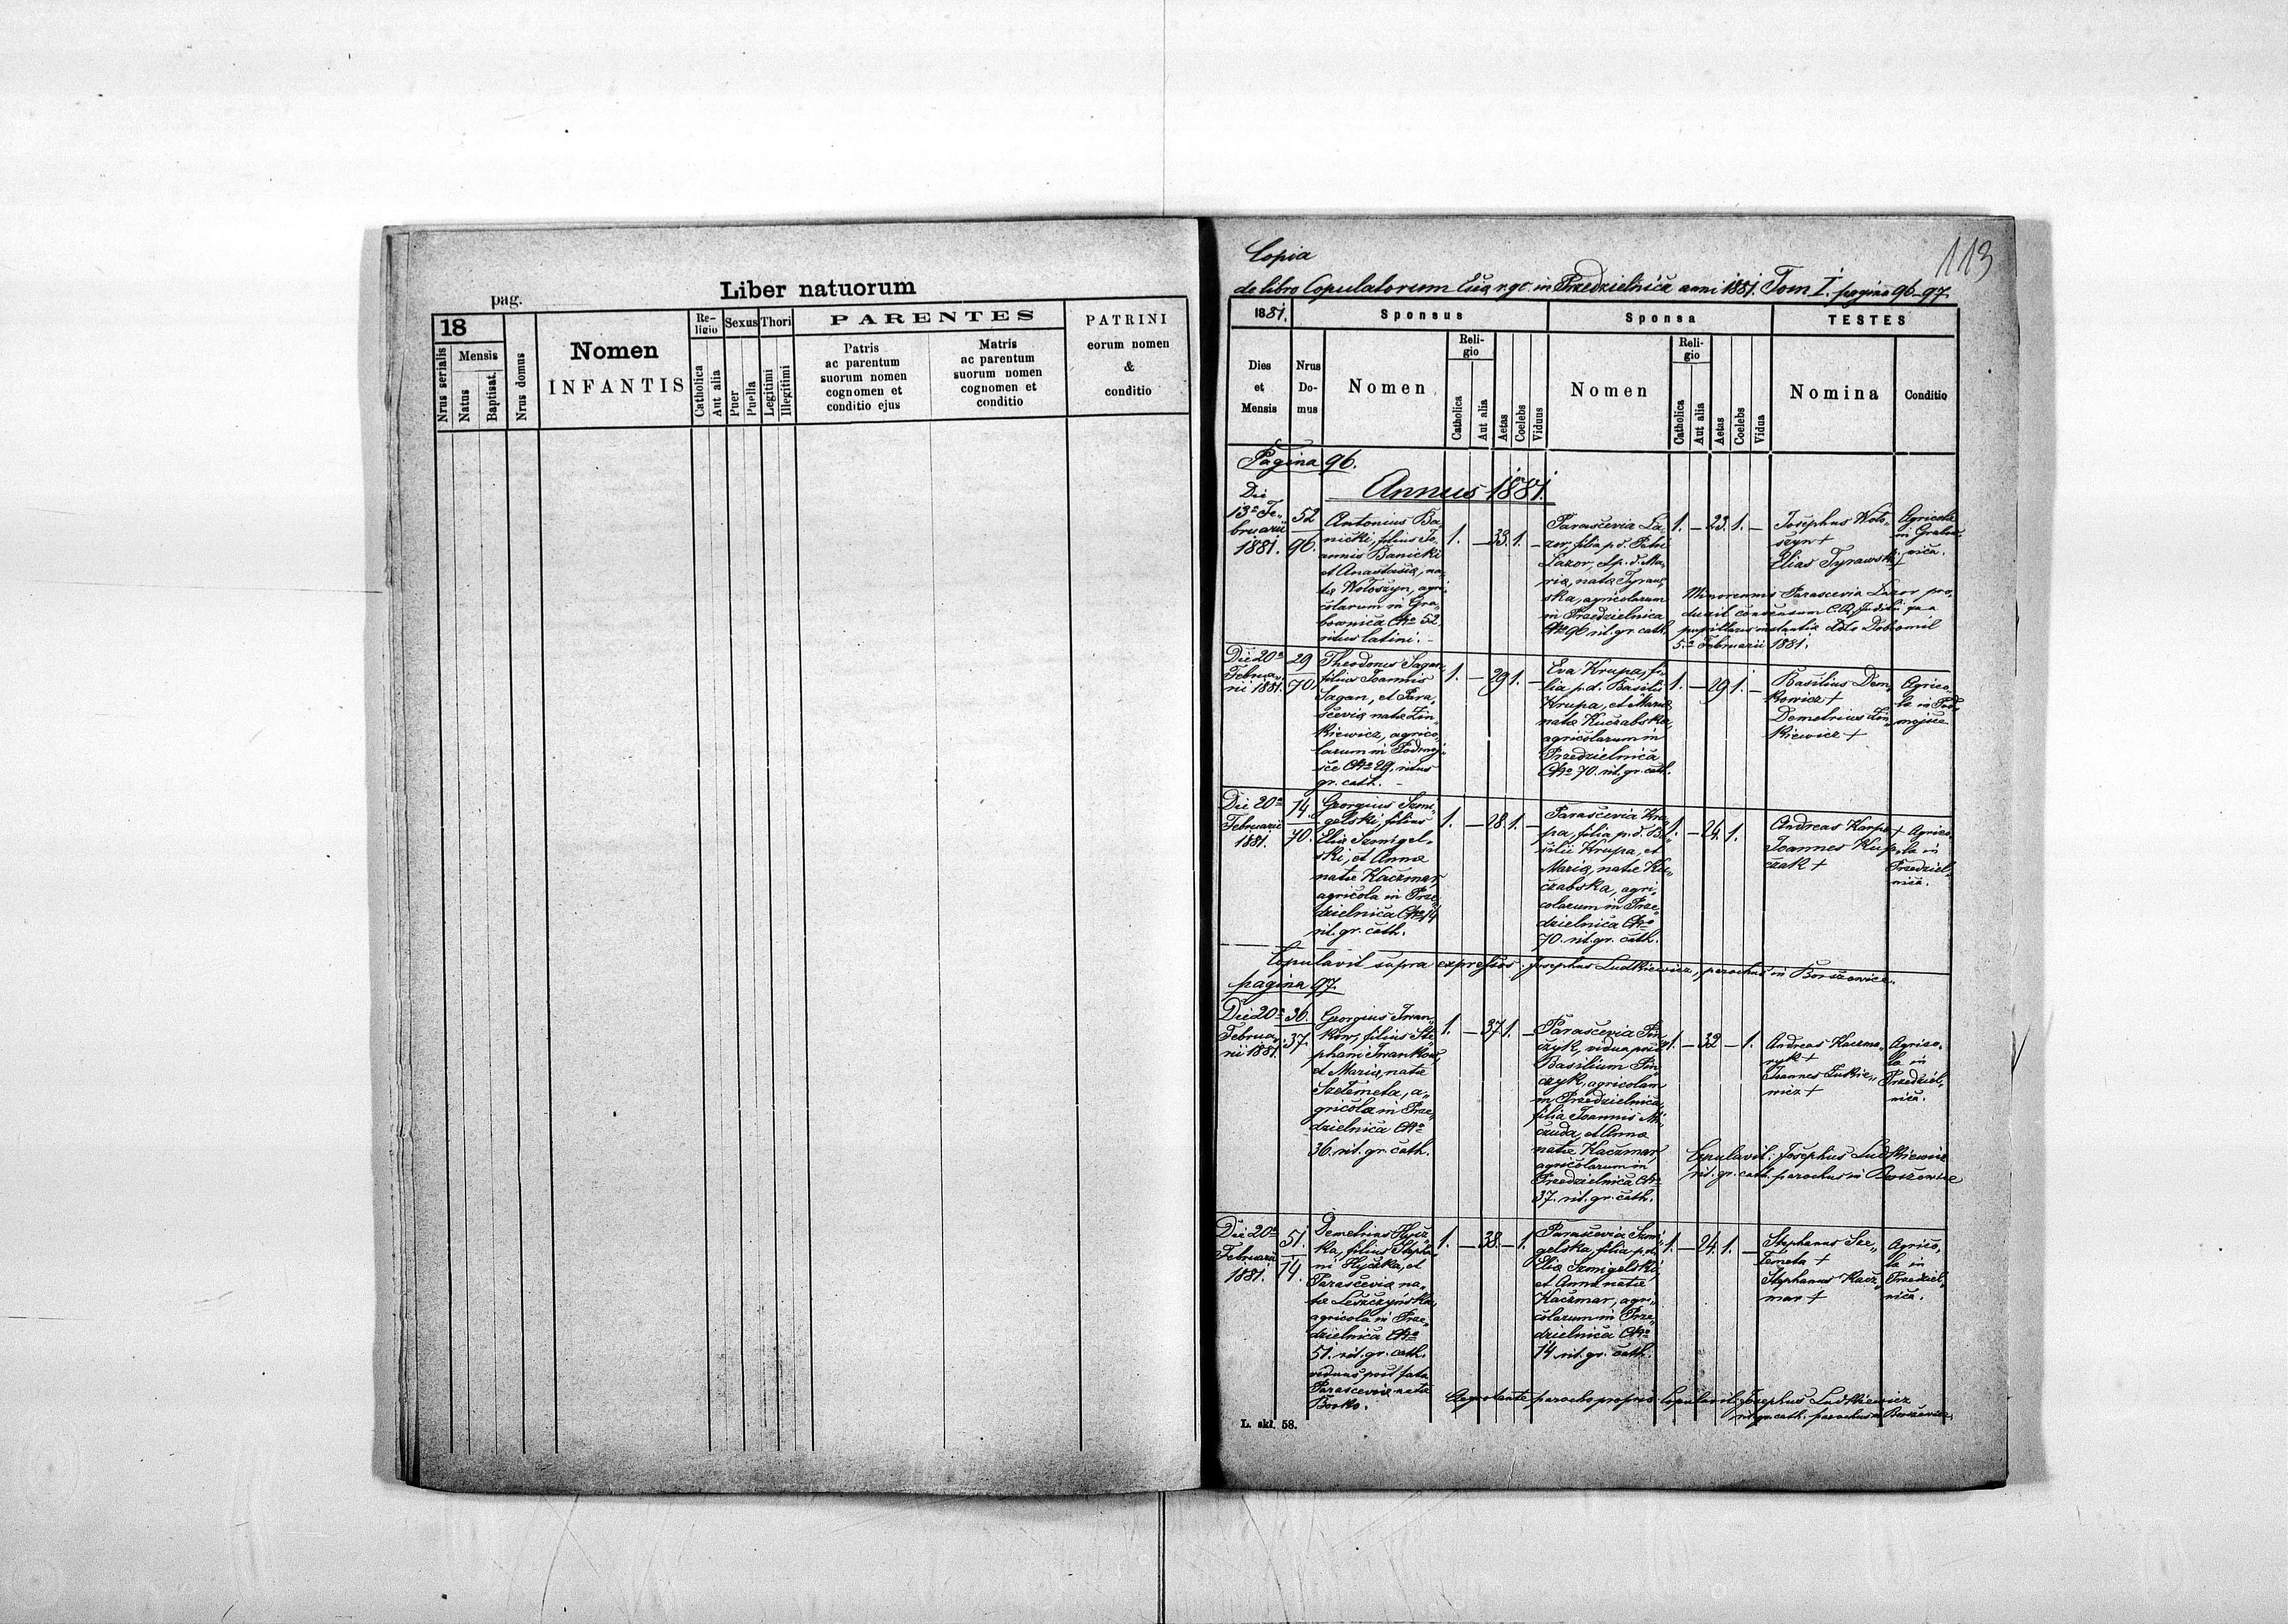 pag.
Liber natuorum
18
Nrus serialis
Mensis
Natus
Baptisat.
Nrus domus
Nomen
INFANTIS
Re-
ligio
Catholica
Aut alia
Sexus
Puer
Puella
Thori
Legitimi
Illegitimi
PARENTES
Patris
ac parentum
suorum nomen
cognomen et
conditio ejus
Matris
ac parentum
suorum nomen
cognomen et
conditio
PATRINI
eorum nomen
&
conditio
113
Copia
de libro Copulatorum in Przedzielnica anni 1881. Tom I. pagina 96-97
1881.
Sponsus
Sponsa
TESTES
Dies
et
Mensis
Nrus
Do-
mus
Nomen
Reli-
gio
Catholica
Aut alia
Aetas
Coelebs
Viduus
Nomen
Reli-
gio
Catholica
Aut alia
Aetas
Coelebs
Vidua
Nomina
Conditio
Pagina 96.
Annus 1881.
Die
13a Fe„
bruarii
1881.
52
96.
Antonius Ba„
nicki, filius Jo„
annis Banicki
et Anastasiæ, na„
tæ Wołoszyn, agri„
colarum in Gra„
bownica CNo 52.
ritus latini. -
1. — 33. 1. —
Parascevia La„
zor, filia p. d. Petri
Lazor, et p. d. Ma„
riæ, natæ Tyraw„
ska, agricolarum
in Przedzielnica
CNo 96 rit. gr. cath.
1. — 23. 1. —
Josephus Woło„
szyn +
Elias Tyrawski +
Agricolæ
in Grabow„
nica.
Minorennis Parascevia Lazor pro„
duxit consensum C. R. Judicii qua
pupillaris instantiæ ddto Dobromil
5a Februarii 1881.
Die 20a
Februa„
rii 1881.
29
70
Theodorus Sagan,
filius Joannis
Sagan, et Para„
sceviæ natæ Zin„
kiewicz, agrico„
larum in Podmoj„
sce CNo 29, ritus
gr. cath. -
1. — 29 1. —
Eva Krupa, fi„
lia p. d. Basilii
Krupa, et Mariæ
natæ Kuczabska,
agricolarum in
Przedzielnica
CNo 70. rit. gr. cath.
1. — 29 1. —
Basilius Dem„
kowicz +
Demetrius Zin„
kiewicz +
Agrico„
læ in Pod„
mojsce
Die 20a
Februarii
1881.
14.
70.
Georgius Szmi„
gelski, filius
Eliæ Szmigel„
ski, et Annæ
natæ Kaczmar,
agricola in Prze„
dzielnica CNo 14
rit. gr. cath.
1. — 28. 1. —
Parascevia Kru„
pa, filia p. d. Ba„
silii Krupa, et
Mariæ, natæ Ku„
czabska, agri„
colarum in Prze„
dzielnica CNo
70. rit. gr. cath.
1. — 24. 1.
Andreas Karpa +
Joannes Kup„
czak +
Agrico„
læ in
Przedziel„
nica.
Copulavit supra expressos: Josephus Ludkiewicz, parochus in Borszowice.
pagina 97.
Die 20a
Februa„
rii 1881.
36.
37.
Georgius Iwan„
ków, filius Ste„
phani Iwanków,
et Mariæ, natæ
Szełemeta, a„
gricola in Prze„
dzielnica CNo
36. rit. gr. cath.
1. — 37 1. —
Parascevia Pin„
czyk, vidua post
Basilium Pin„
czyk, agricolam
in Przedzielnica,
filia Joannis Mi„
czuda, et Annæ
natæ Kaczmar,
agricolarum in
Przedzielnica CNo
37. rit. gr. cath.
1. — 32 — 1.
Andreas Kaczma„
ryk +
Joannes Łukie„
wicz +
Agrico„
læ in
Przedziel„
nica.
Copulavit: Josephus Ludkiewicz
rit. gr. cath. parochus in Borszowice
Die 20a
Februarii
1881.
51.
14.
Demetrius Hycz„
ka, filius Stepha„
ni Hyczka, et
Parasceviæ na„
tæ Leszczyńska,
agricola in Prze„
dzielnica CNo
51. rit. gr. cath.
viduus post fata
Parasceviæ natæ
Borko.
1. — 38. — 1.
Parascevia Szmi„
gelska, filia p. d.
Eliæ Szmigelski,
et Annæ natæ
Kaczmar, agri„
colarum in Prze„
dzielnica CNo
14 rit. gr. cath.
1. — 24. 1. —
Stephanus Sze„
łemeta +
Stephanus Kacz„
mar +
Agrico„
læ in
Przedziel„
nica.
Aegrotante parocho proprio Copulavit: Josephus Ludkiewicz
rit. gr. cath. parochus in Borszowice.
L. skł. 58.